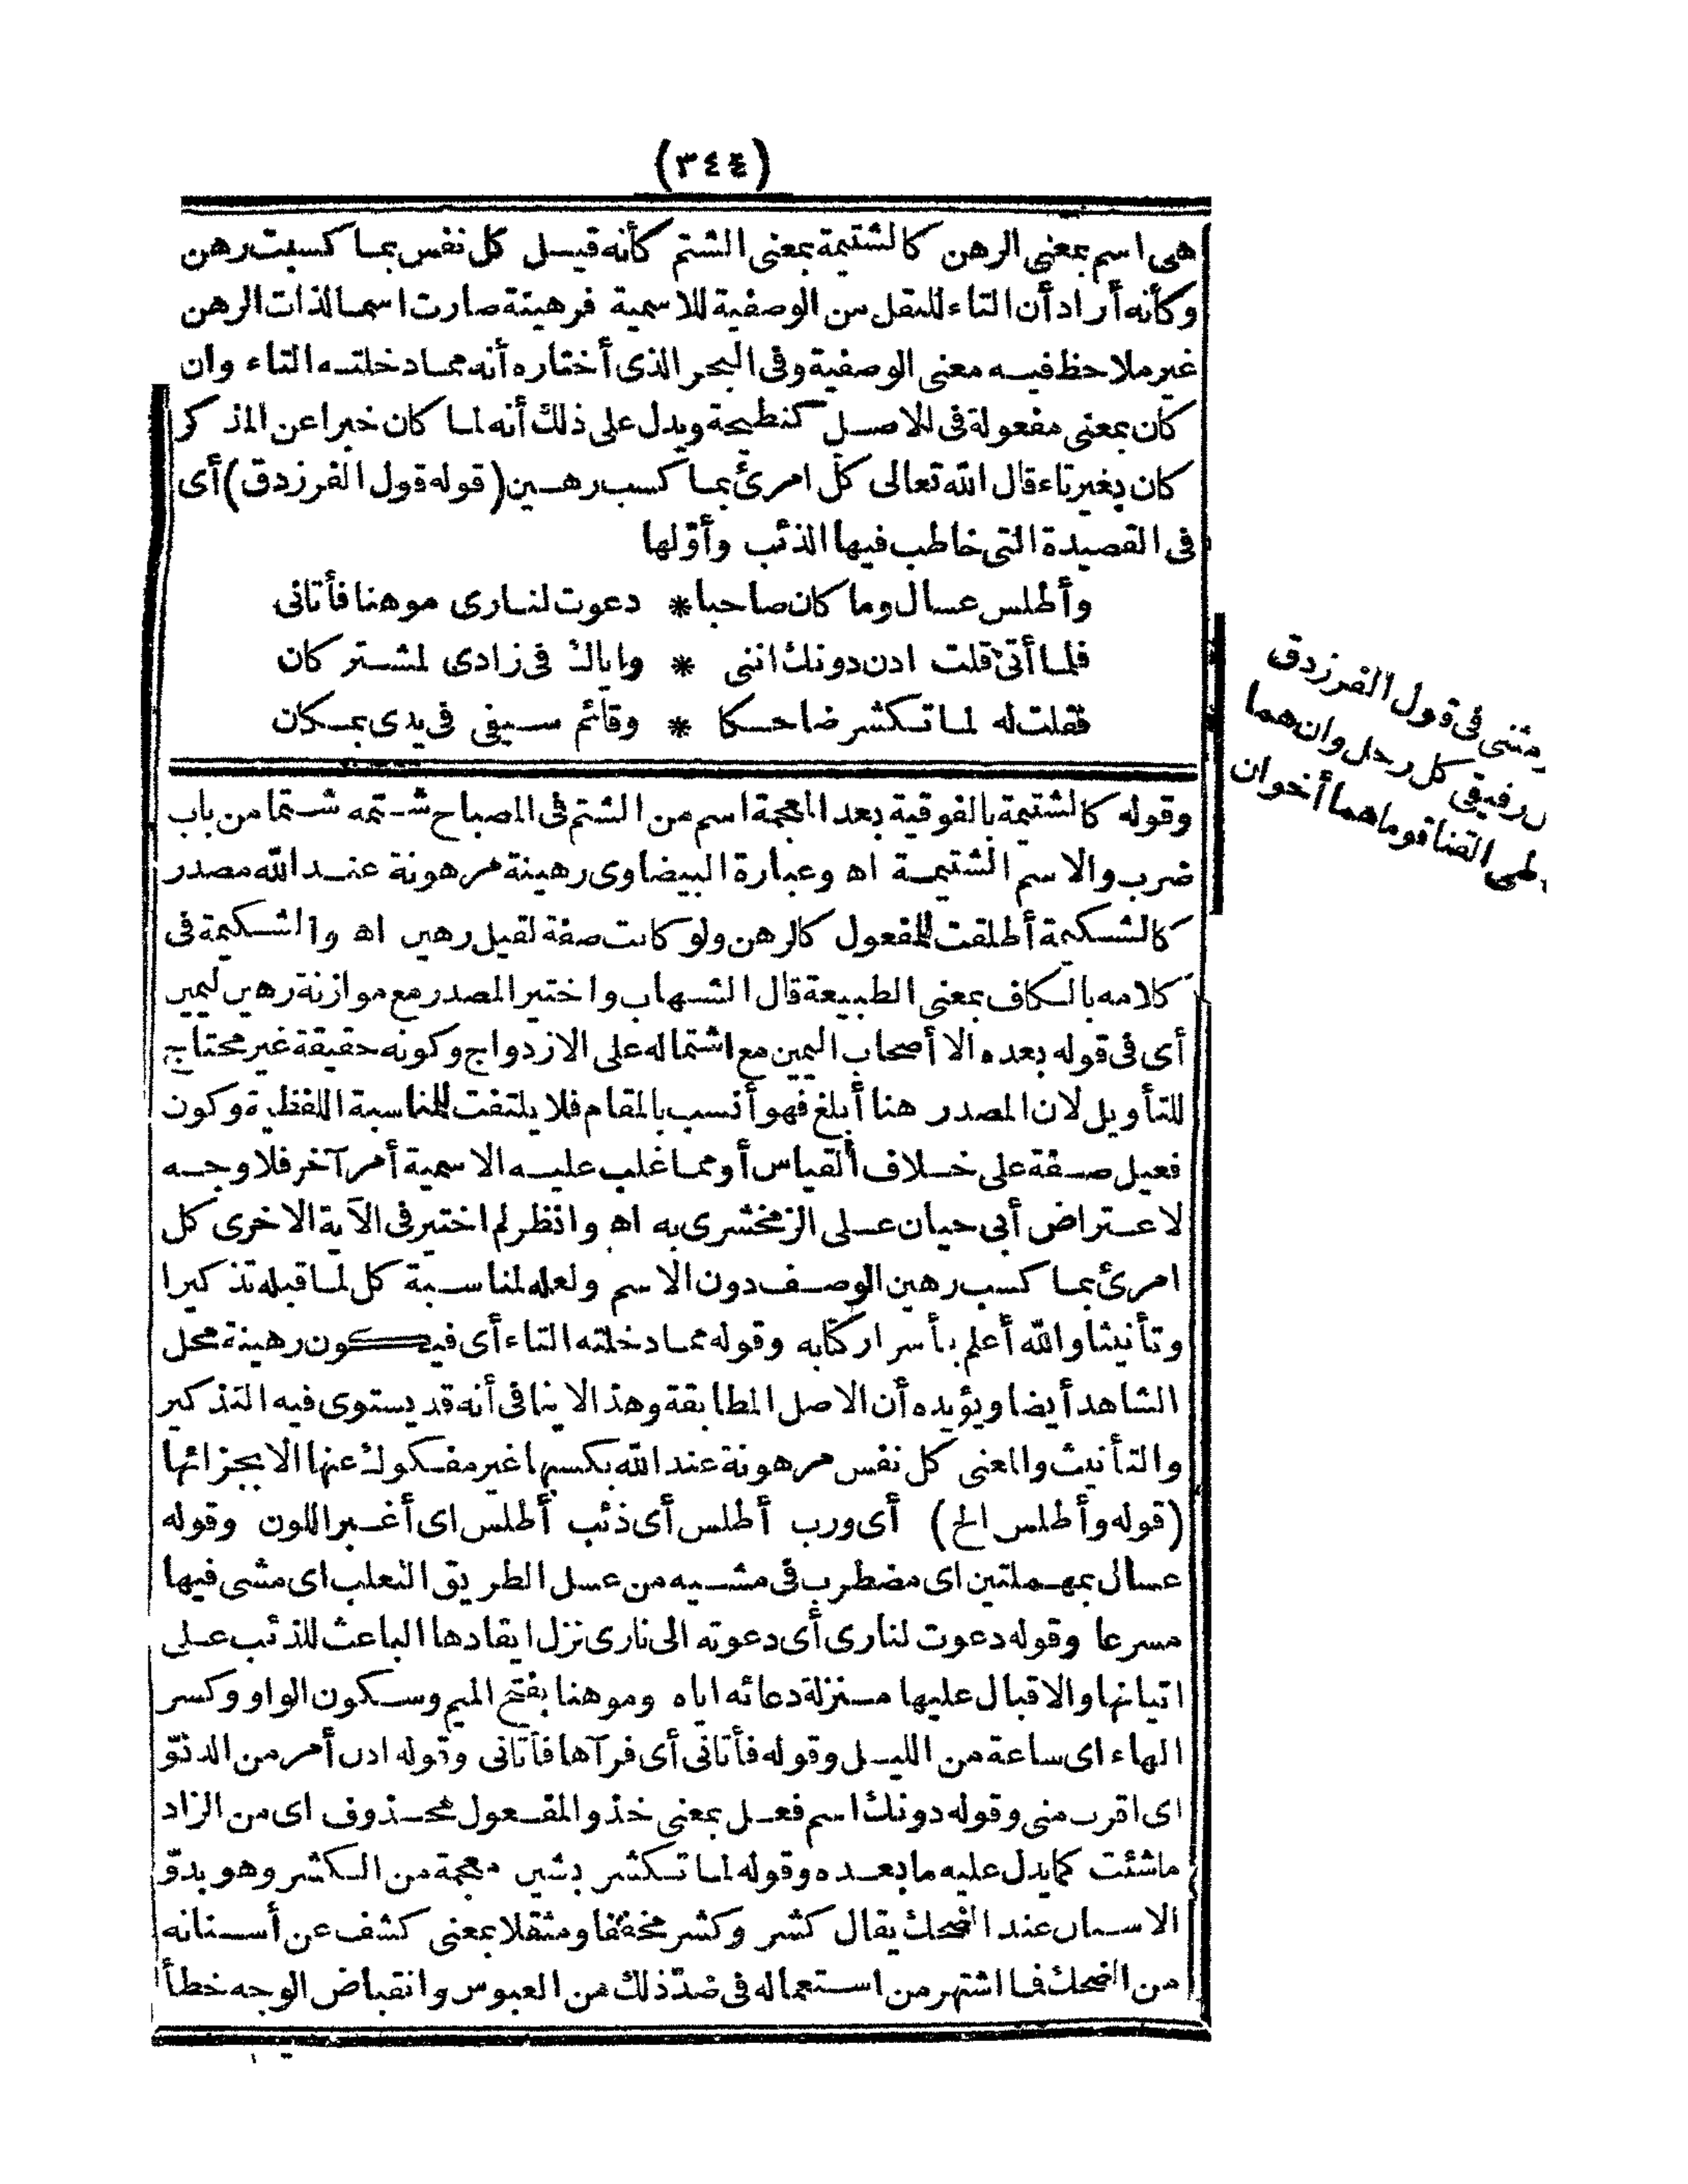 (٣٤٤)
هى اسم بمعنى الرهن كالشتيمة بمعنى الشتم كأنه قيل كل نفس بما كسبت رهن
وكأنه أراد أن التاء للنقل من الوصفية للاسمية فرهينة صارت اسما لذات الرهن
غير ملاحظ فيه معنى الوصفية وفى البحر الذى أختاره أنه مما دخلته التاء وان
كان بمعنى مفعولة فى الاصل كنطيحة ويدل على ذلك أنه لما كان خبرا عن المذكر
كان بغير تاء قال الله تعالى كل امرئ بما كسب رهين (قوله قول الفرزدق) أى
فى القصيدة التى خاطب فيها الذئب وأوّلها
وأطلس عسال وما كان صاحبا * دعوت لنارى موهنا فأتانى
فلما أتى قلت ادن دونك اننى * واياك فى زادى لمشتركان
فقلت له لما تكشر ضاحكا * وقائم سيفى فى يدى بمكان
مثنى فى قول الفرزدق
رفيقى كل رحل وان هما
القنا قوماهما أخوان
وقوله كالشتيمة بالفوقية بعد المعجمة اسم من الشتم فى المصباح شتمه شتما من باب
ضرب والاسم الشتيمة اه وعبارة البيضاوى رهينة مرهونة عند الله مصدر
كالشكيمة أطلقت للمفعول كالرهن ولو كانت صفة لقيل رهين اه والشكيمة فى
كلامه بالكاف بمعنى الطبيعة قال الشهاب واختير المصدر مع موازنة رهين ليمين
أى فى قوله بعده الا أصحاب اليمين مع اشتماله على الازدواج وكونه حقيقة غير محتاج
للتأويل لان المصدر هنا أبلغ فهو أنسب بالمقام فلا يلتفت للمناسبة اللفظية وكون
فعيل صفة على خلاف القياس أو مما غلب عليه الاسمية أمر آخر فلا وجه
لاعتراض أبى حيان على الزمخشرى به اه وانظر لم اختير فى الآية الاخرى كل
امرئ بما كسب رهين الوصف دون الاسم ولعله لمناسبة كل لما قبله تذكيرا
وتأنيثا والله أعلم بأسرار كتابه وقوله مما دخلته التاء أى فيكون رهينة محل
الشاهد أيضا ويؤيده أن الاصل المطابقة وهذا لا ينافى أنه قد يستوى فيه التذكير
والتأنيث والمعنى كل نفس مرهونة عند الله بكسبها غير مفكوك عنها الا بجزائها
(قوله وأطلس الخ) أى ورب أطلس أى ذئب أطلس اى أغبر اللون وقوله
عسال بمهملتين اى مضطرب فى مشيه من عسل الطريق الثعلب اى مشى فيها
مسرعا وقوله دعوت لنارى أى دعوته الى نارى نزل ايقادها الباعث للذئب على
اتيانها والاقبال عليها منزلة دعائه اياه وموهنا بفتح الميم وسكون الواو وكسر
الهاء اى ساعة من الليل وقوله فأتانى أى فرآها فأتانى وقوله ادن أمر من الدنوّ
اى اقرب منى وقوله دونك اسم فعل بمعنى خذ والمفعول محذوف اى من الزاد
ماشئت كما يدل عليه ما بعده وقوله لما تكشر بشين معجمة من الكشر وهو بدوّ
الاسنان عند الضحك يقال كشر وكشر مخففا ومثقلا بمعنى كشف عن أسنانه
من الضحك فما اشتهر من استعماله فى ضدّ ذلك من العبوس وانقباض الوجه خطأ